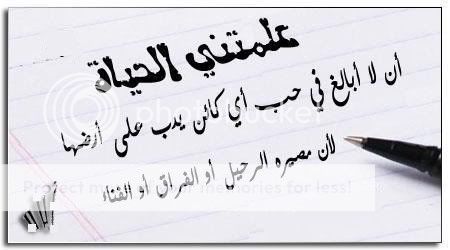 علمتني الحياة
أن لا أبالغ في حب أي كائن يدب على أرضها
لأن مصيره الرحيل أو الفراق أو الفناء
photobucket
Protect more of your memories for less!